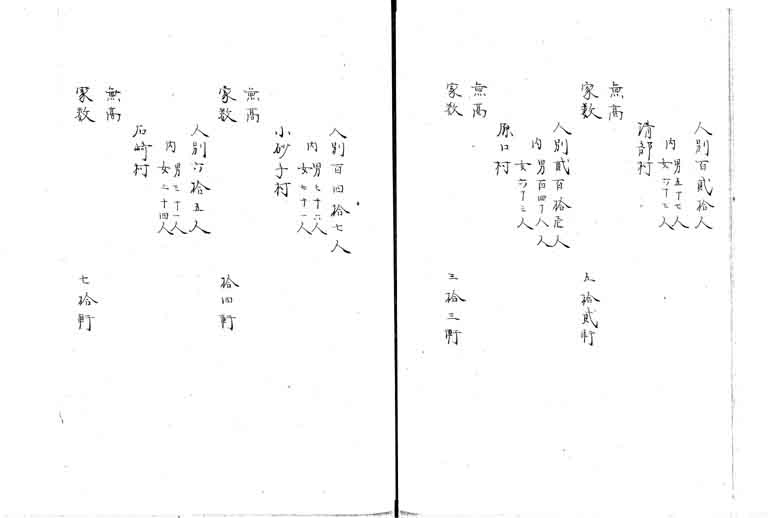 人別百貳拾人
内 男五十七人
女六十三人
清部村
無高
家数 五拾貳軒
人別貳百拾壱人
内 男百四十八人
女六十三人
原口村
無高
家数 三拾三軒
人別百四拾七人
内 男七十六人
女七十一人
小砂子村
無高
家数 拾四軒
人別六拾五人
内 男三十一人
女三十四人
石崎村
無高
家数 七拾軒